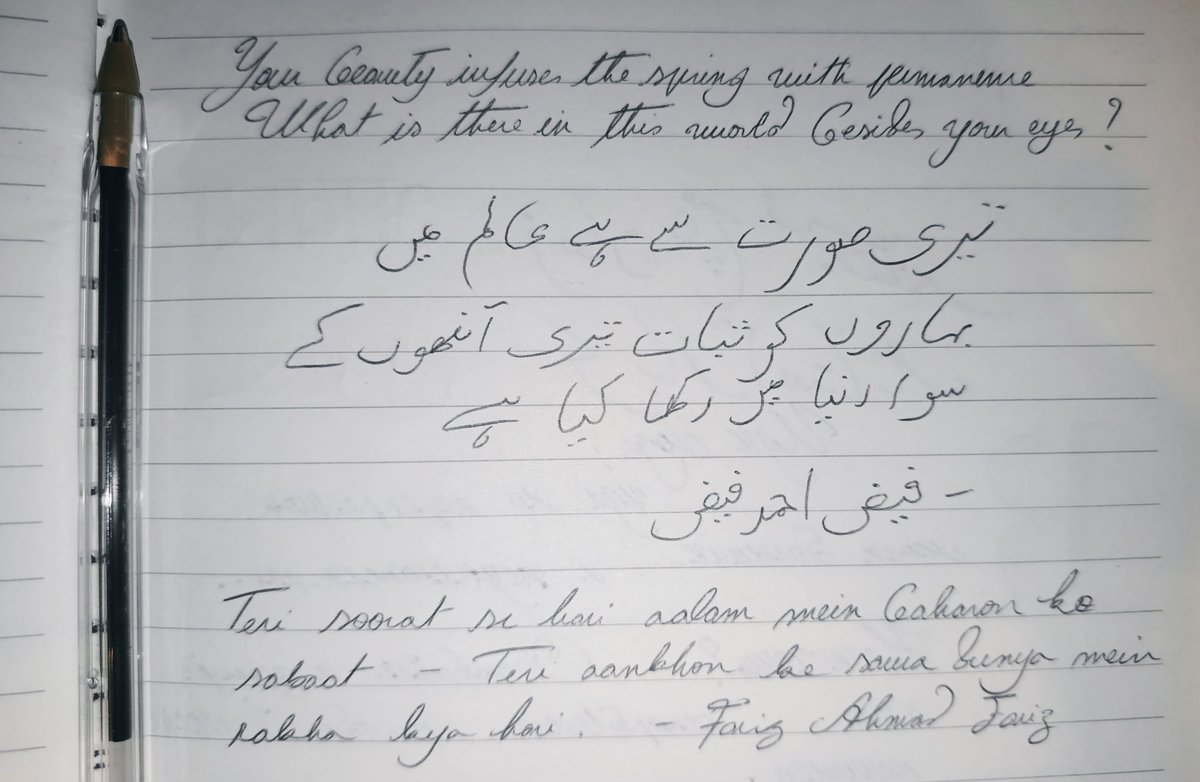 Your beauty infuses the spring with permanence
What is there in this world besides your eyes?
تیری صورت سے ہے عالم میں
بہاروں کو ثبات تیری آنکھوں کے
سوا دنیا میں رکھا کیا ہے
- فیض احمد فیض
Teri soorat se hai aalam mein baharon ko
sabaat - Teri aankhon ke sawa dunya mein
rakha kya hai. - Faiz Ahmad Faiz